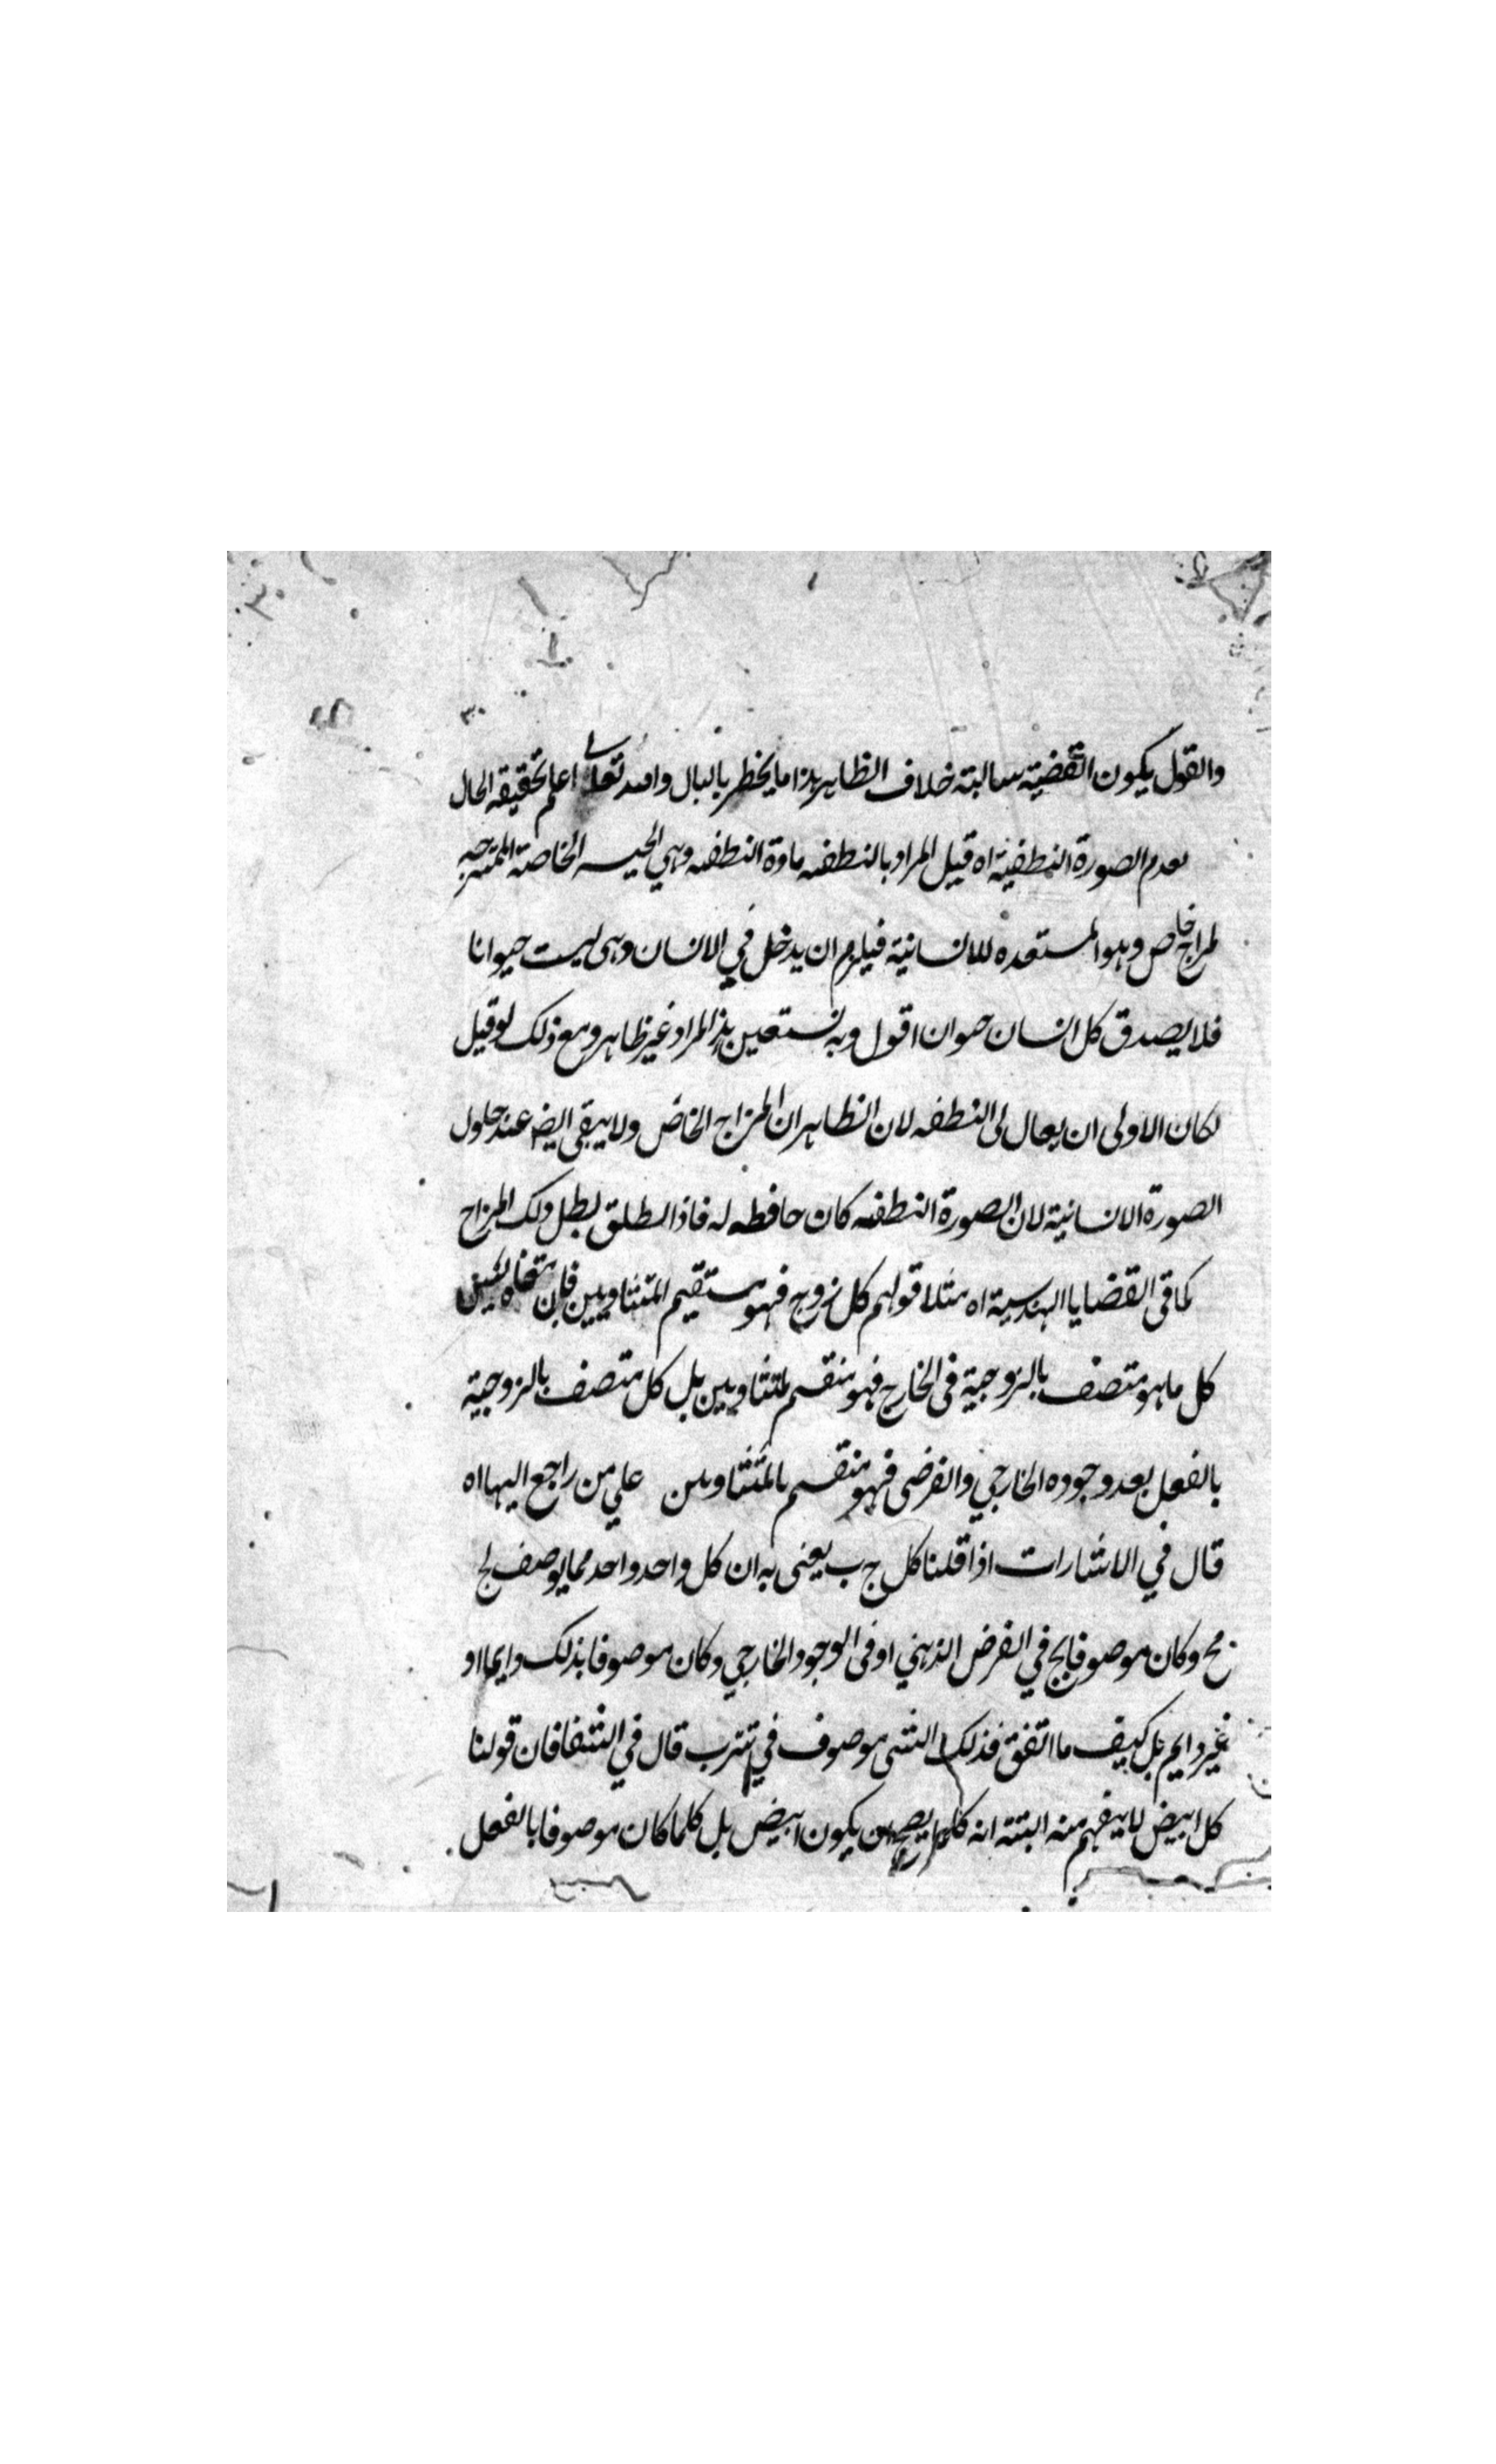 والقول بكون القضية سالبة خلاف الظاهر هذا ما يخطر بالبال والله تعالى اعلم بحقيقة الحال
بعدم الصورة النطفية اه قيل المراد بالنطفه مادة النطفه وهي الخاصة الممتزجه
لمزاج خاص وهو المستعده للانسانية فيلزم ان يدخل في الانسان وهى ليست حيوانا
فلا يصدق كل انسان حيوان اقول وبه نستعين هذا المراد غير ظاهر ومع ذلك لو قيل
لكان الاولى ان يقال لى النطفه لان الظاهر ان المزاج الخاص ولا يبقى ايضا عند حلول
الصورة الانسانية لان الصورة النطفه كان حافظه له فاذا بطل ذلك المزاج
كما فى القضايا الهندسية اه مثلا قولهم كل زوج فهو منقسم المتساويين فان معناه ليس
كل ما هو متصف بالزوجية فى الخارج فهو منقسم لمتساويين بل كل متصف بالزوجية
بالفعل بعد وجوده الخارجي والفرضى فهو منقسم بالمتساويين علي من راجع اليها اه
قال في الاشارات اذا قلنا كل ج ب يعنى به ان كل واحد واحد مما يوصف لج
مح وكان موصوفا بج في الفرض الذهني او فى الوجود الخارجي وكان موصوفا بذلك دايما او
غير دايم بل كيف ما اتفق فذلك الشى موصوف في ب قال في الشفا فان قولنا
كل ابيض لا يفهم منه البتة انه كلما يصح ان يكون ابيض بل كلما كان موصوفا بالفعل